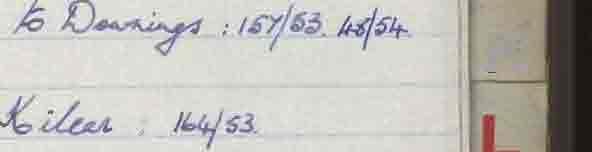 to Downings : 157/53. 48/54.
Kilcar : 164/53.